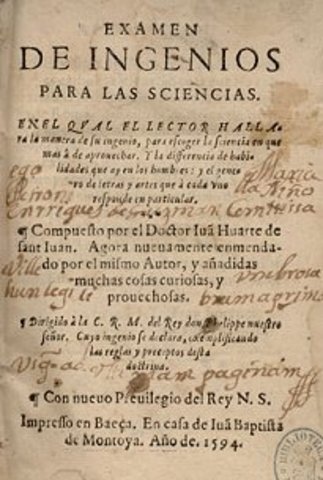 EXAMEN
DE INGENIOS
PARA LAS SCIENCIAS.
EN EL QVAL EL LECTOR HALLA-
ra la manera de su ingenio, para escoger la sciencia en que
mas à de aprouechar. Y la differencia de habi-
lidades que ay en los hombres: y el gene-
ro de letras y artes que à cada vno
responde en particular.
¶ Compuesto por el Doctor Iuã Huarte de
sant Iuan. Agora nueuamente enmenda-
do por el mismo Autor, y añadidas
muchas cosas curiosas, y
prouechosas.
¶ Dirigido à la C. R. M. del Rey don Philippe nuestro
señor. Cuyo ingenio se declara, exemplificando
las reglas y preceptos desta
doctrina.
¶ Con nueuo Preuilegio del Rey N. S.
Impresso en Baeça. En casa de Iuã Baptista
de Montoya. Año de. 1594.
ego
Maria
Niño
Enrriques de
hunc legi
paginam
BIBLIOTECA